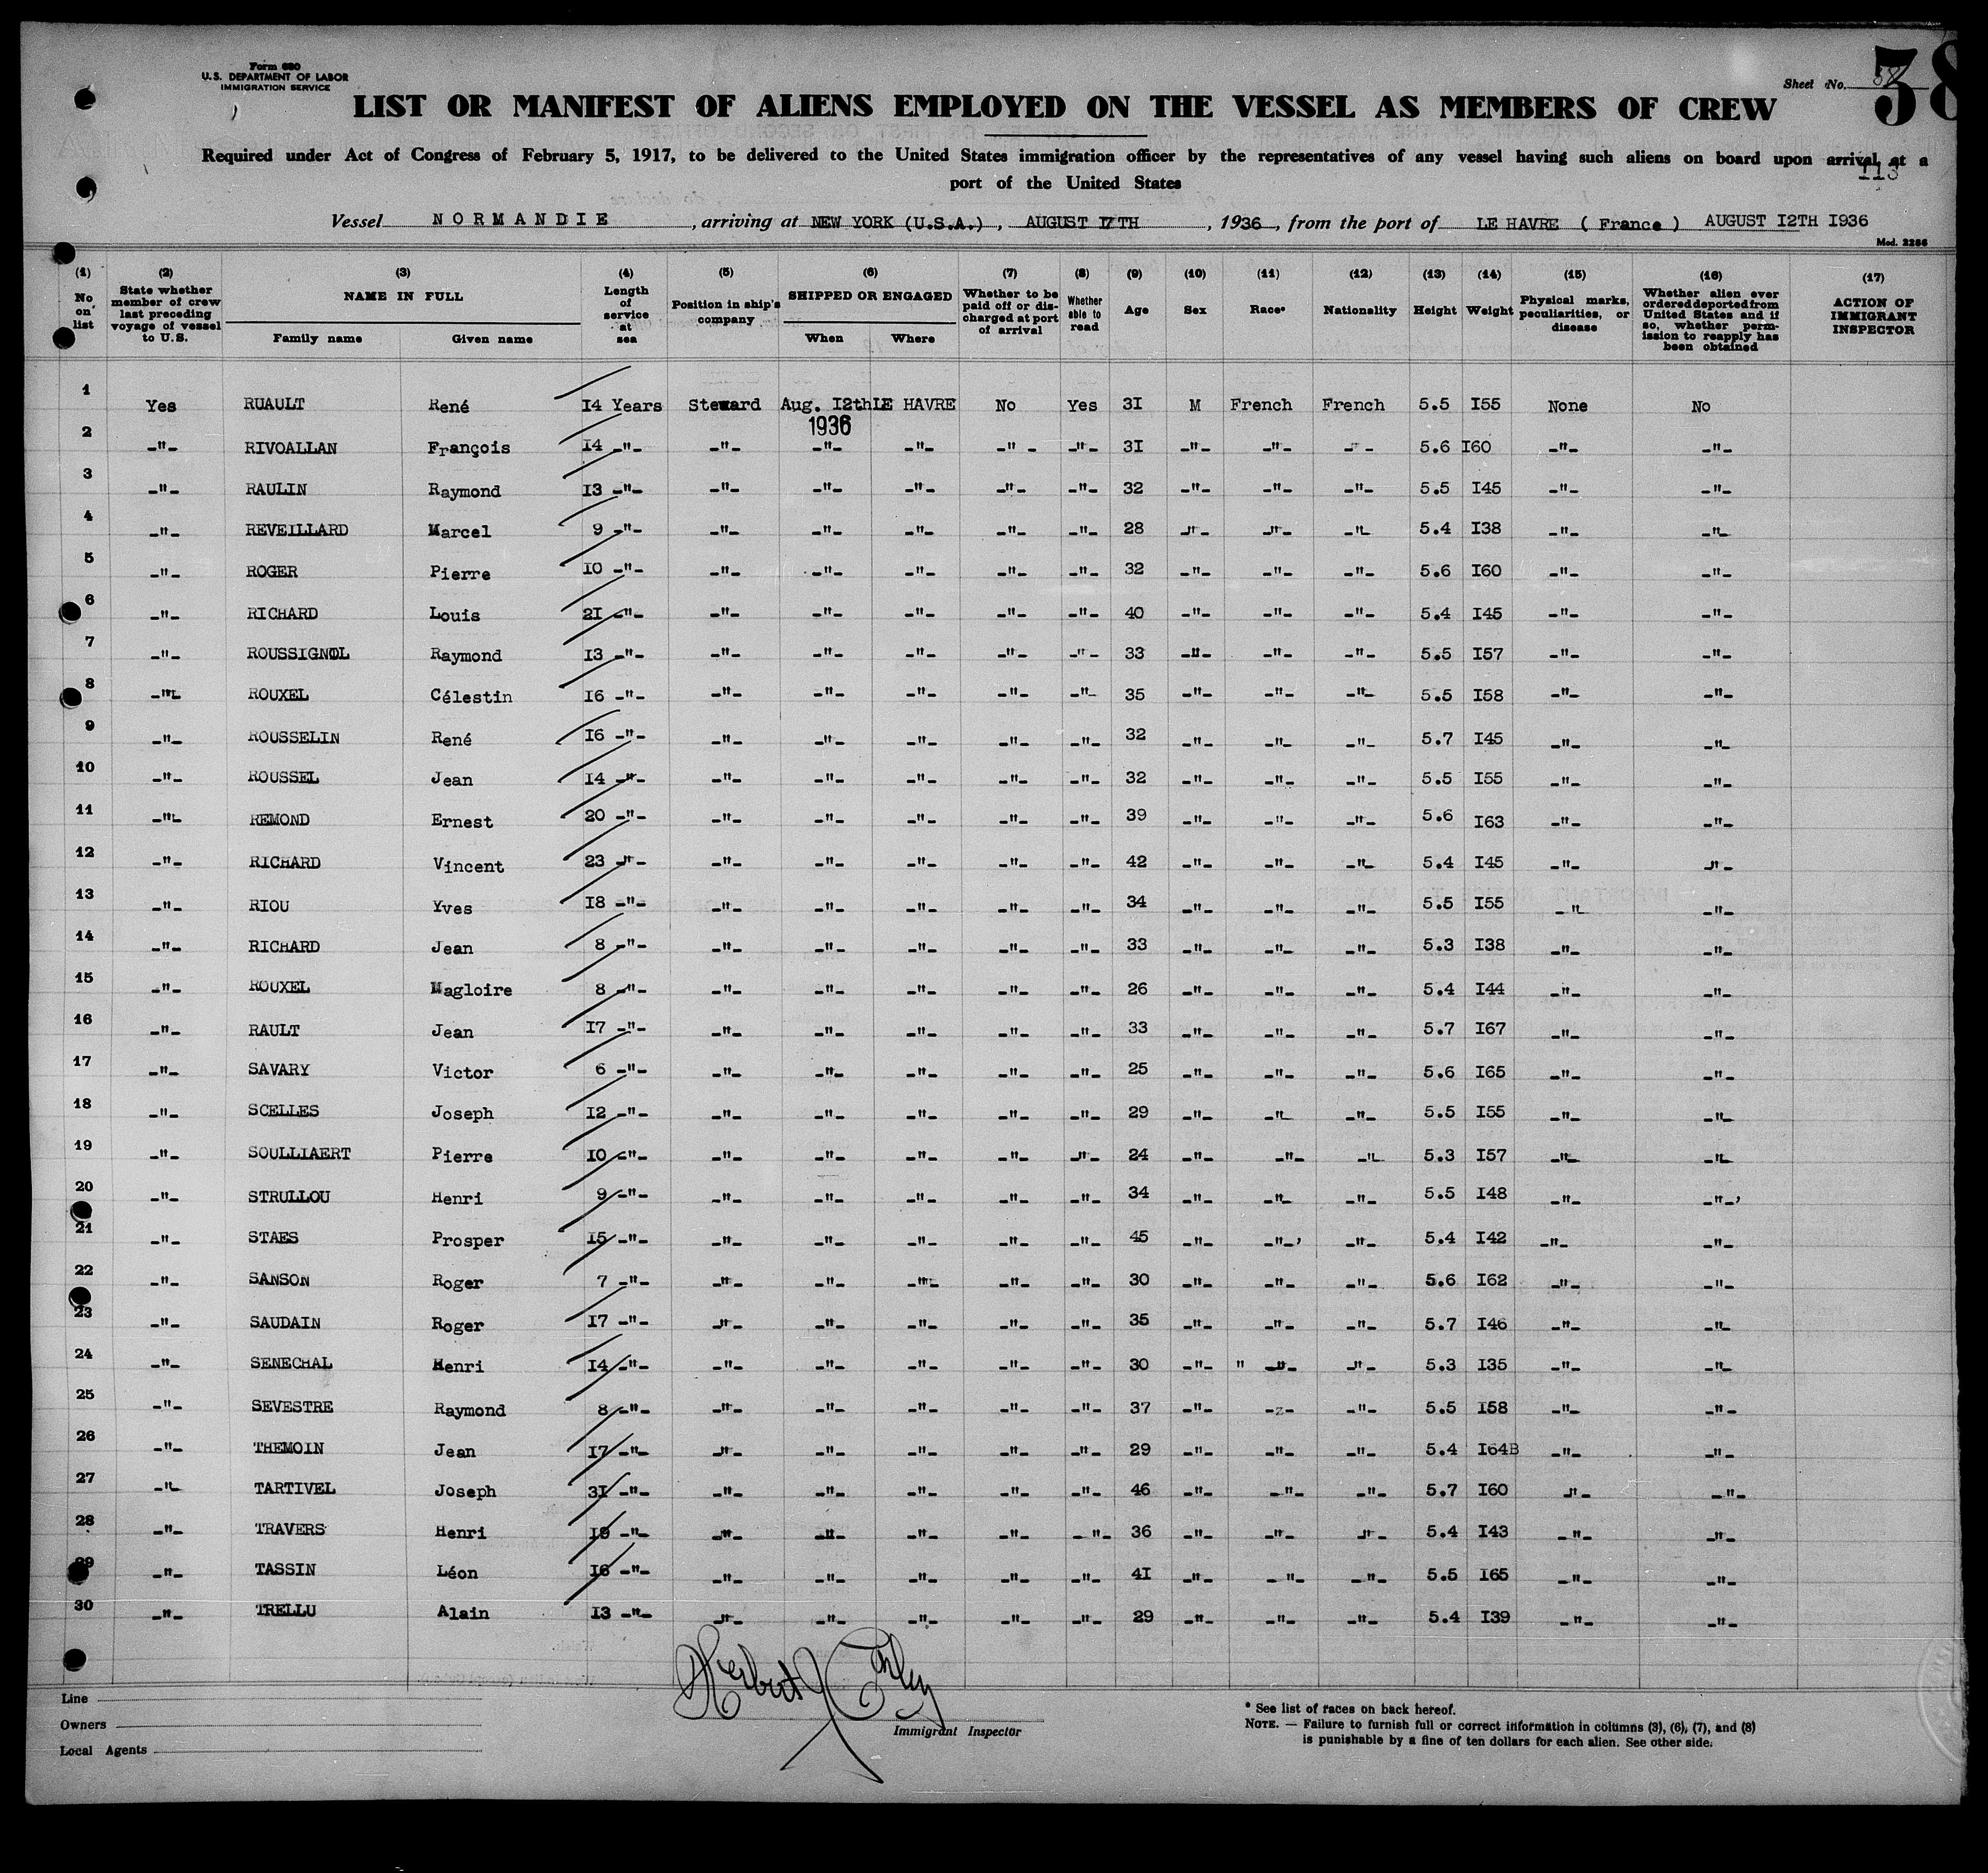 Form 680
U.S. DEPARTMENT OF LABOR
IMMIGRATION SERVICE
Sheet No. 38
38
LIST OR MANIFEST OF ALIENS EMPLOYED ON THE VESSEL AS MEMBERS OF CREW
Required under Act of Congress of February 5, 1917, to be delivered to the United States immigration officer by the representatives of any vessel having such aliens on board upon arrival at a
port of the United States
113
Vessel NORMANDIE, arriving at NEW YORK (U.S.A.), AUGUST 17TH, 1936, from the port of LE HAVRE ( France ) AUGUST I2TH I936
Mod. 2286
(1) No on list (2) State whether member of crew last preceding voyage of vessel to U.S. (3) NAME IN FULL Family name Given name (4) Length of service at sea (5) Position in ship's company (6) SHIPPED OR ENGAGED When Where (7) Whether to be paid off or discharged at port of arrival (8) Whether able to read (9) Age (10) Sex (11) Race* (12) Nationality (13) Height (14) Weight (15) Physical marks, peculiarities, or disease (16) Whether alien ever ordered deported from United States and if so, whether permission to reapply has been obtained (17) ACTION OF IMMIGRANT INSPECTOR
1 Yes RUAULT René I4 Years Steward Aug. I2th LE HAVRE No Yes 3I M French French 5.5 I55 None No
1936
2 -"- RIVOALLAN François I4 -"- -"- -"- -"- -"- - -"- 3I -"- -"- -"- 5.6 I60 -"- -"-
3 -"- RAULIN Raymond I3 -"- -"- -"- -"- -"- -"- 32 -"- -"- -"- 5.5 I45 -"- -"-
4 -"- REVEILLARD Marcel 9 -"- -"- -"- -"- -"- -"- 28 -"- -"- -"- 5.4 I38 -"- -"-
5 -"- ROGER Pierre I0 -"- -"- -"- -"- -"- -"- 32 -"- -"- -"- 5.6 I60 -"- -"-
6 -"- RICHARD Louis 2I -"- -"- -"- -"- -"- -"- 40 -"- -"- -"- 5.4 I45 -"- -"-
7 -"- ROUSSIGNOL Raymond I3 -"- -"- -"- -"- -"- -"- 33 -"- -"- -"- 5.5 I57 -"- -"-
8 -"- ROUXEL Célestin I6 -"- -"- -"- -"- -"- -"- 35 -"- -"- -"- 5.5 I58 -"- -"-
9 -"- ROUSSELIN René I6 -"- -"- -"- -"- -"- -"- 32 -"- -"- -"- 5.7 I45 -"- -"-
10 -"- ROUSSEL Jean I4 -"- -"- -"- -"- -"- -"- 32 -"- -"- -"- 5.5 I55 -"- -"-
11 -"- REMOND Ernest 20 -"- -"- -"- -"- -"- -"- 39 -"- -"- -"- 5.6 I63 -"- -"-
12 -"- RICHARD Vincent 23 -"- -"- -"- -"- -"- -"- 42 -"- -"- -"- 5.4 I45 -"- -"-
13 -"- RIOU Yves I8 -"- -"- -"- -"- -"- -"- 34 -"- -"- -"- 5.5 I55 -"- -"-
14 -"- RICHARD Jean 8 -"- -"- -"- -"- -"- -"- 33 -"- -"- -"- 5.3 I38 -"- -"-
15 -"- ROUXEL Magloire 8 -"- -"- -"- -"- -"- -"- 26 -"- -"- -"- 5.4 I44 -"- -"-
16 -"- RAULT Jean I7 -"- -"- -"- -"- -"- -"- 33 -"- -"- -"- 5.7 I67 -"- -"-
17 -"- SAVARY Victor 6 -"- -"- -"- -"- -"- -"- 25 -"- -"- -"- 5.6 I65 -"- -"-
18 -"- SCELLES Joseph I2 -"- -"- -"- -"- -"- -"- 29 -"- -"- -"- 5.5 I55 -"- -"-
19 -"- SOULLIAERT Pierre I0 -"- -"- -"- -"- -"- -"- 24 -"- -"- -"- 5.3 I57 -"- -"-
20 -"- STRULLOU Henri 9 -"- -"- -"- -"- -"- -"- 34 -"- -"- -"- 5.5 I48 -"- -"-,
21 -"- STAES Prosper I5 -"- -"- -"- -"- -"- -"- 45 -"- -"-, -"- 5.4 I42 -"- -"-
22 -"- SANSON Roger 7 -"- -"- -"- -"- -"- -"- 30 -"- -"- -"- 5.6 I62 -"- -"-
23 -"- SAUDAIN Roger I7 -"- -"- -"- -"- -"- -"- 35 -"- -"- -"- 5.7 I46 -"- -"-
24 -"- SENECHAL Henri I4 -"- -"- -"- -"- -"- -"- 30 -"- " -"- -"- 5.3 I35 -"- -"-
25 -"- SEVESTRE Raymond 8 -"- -"- -"- -"- -"- -"- 37 -"- -z- -"- 5.5 I58 -"- -"-
26 -"- THEMOIN Jean I7 -"- -"- -"- -"- -"- -"- 29 -"- -"- -"- 5.4 I64B -"- -"-
27 -"- TARTIVEL Joseph 3I -"- -"- -"- -"- -"- -"- 46 -"- -"- -"- 5.7 I60 -"- -"-
28 -"- TRAVERS Henri I9 -"- -"- -"- -"- -"- -"- 36 -"- -"- -"- 5.4 I43 -"- -"-
29 -"- TASSIN Léon I6 -"- -"- -"- -"- -"- -"- 4I -"- -"- -"- 5.5 I65 -"- -"-
30 -"- TRELLU Alain I3 -"- -"- -"- -"- -"- -"- 29 -"- -"- -"- 5.4 I39 -"- -"-
Line
Owners
Local Agents
Herbert
Immigrant Inspector
* See list of races on back hereof.
NOTE. — Failure to furnish full or correct information in columns (3), (6), (7), and (8)
is punishable by a fine of ten dollars for each alien. See other side.